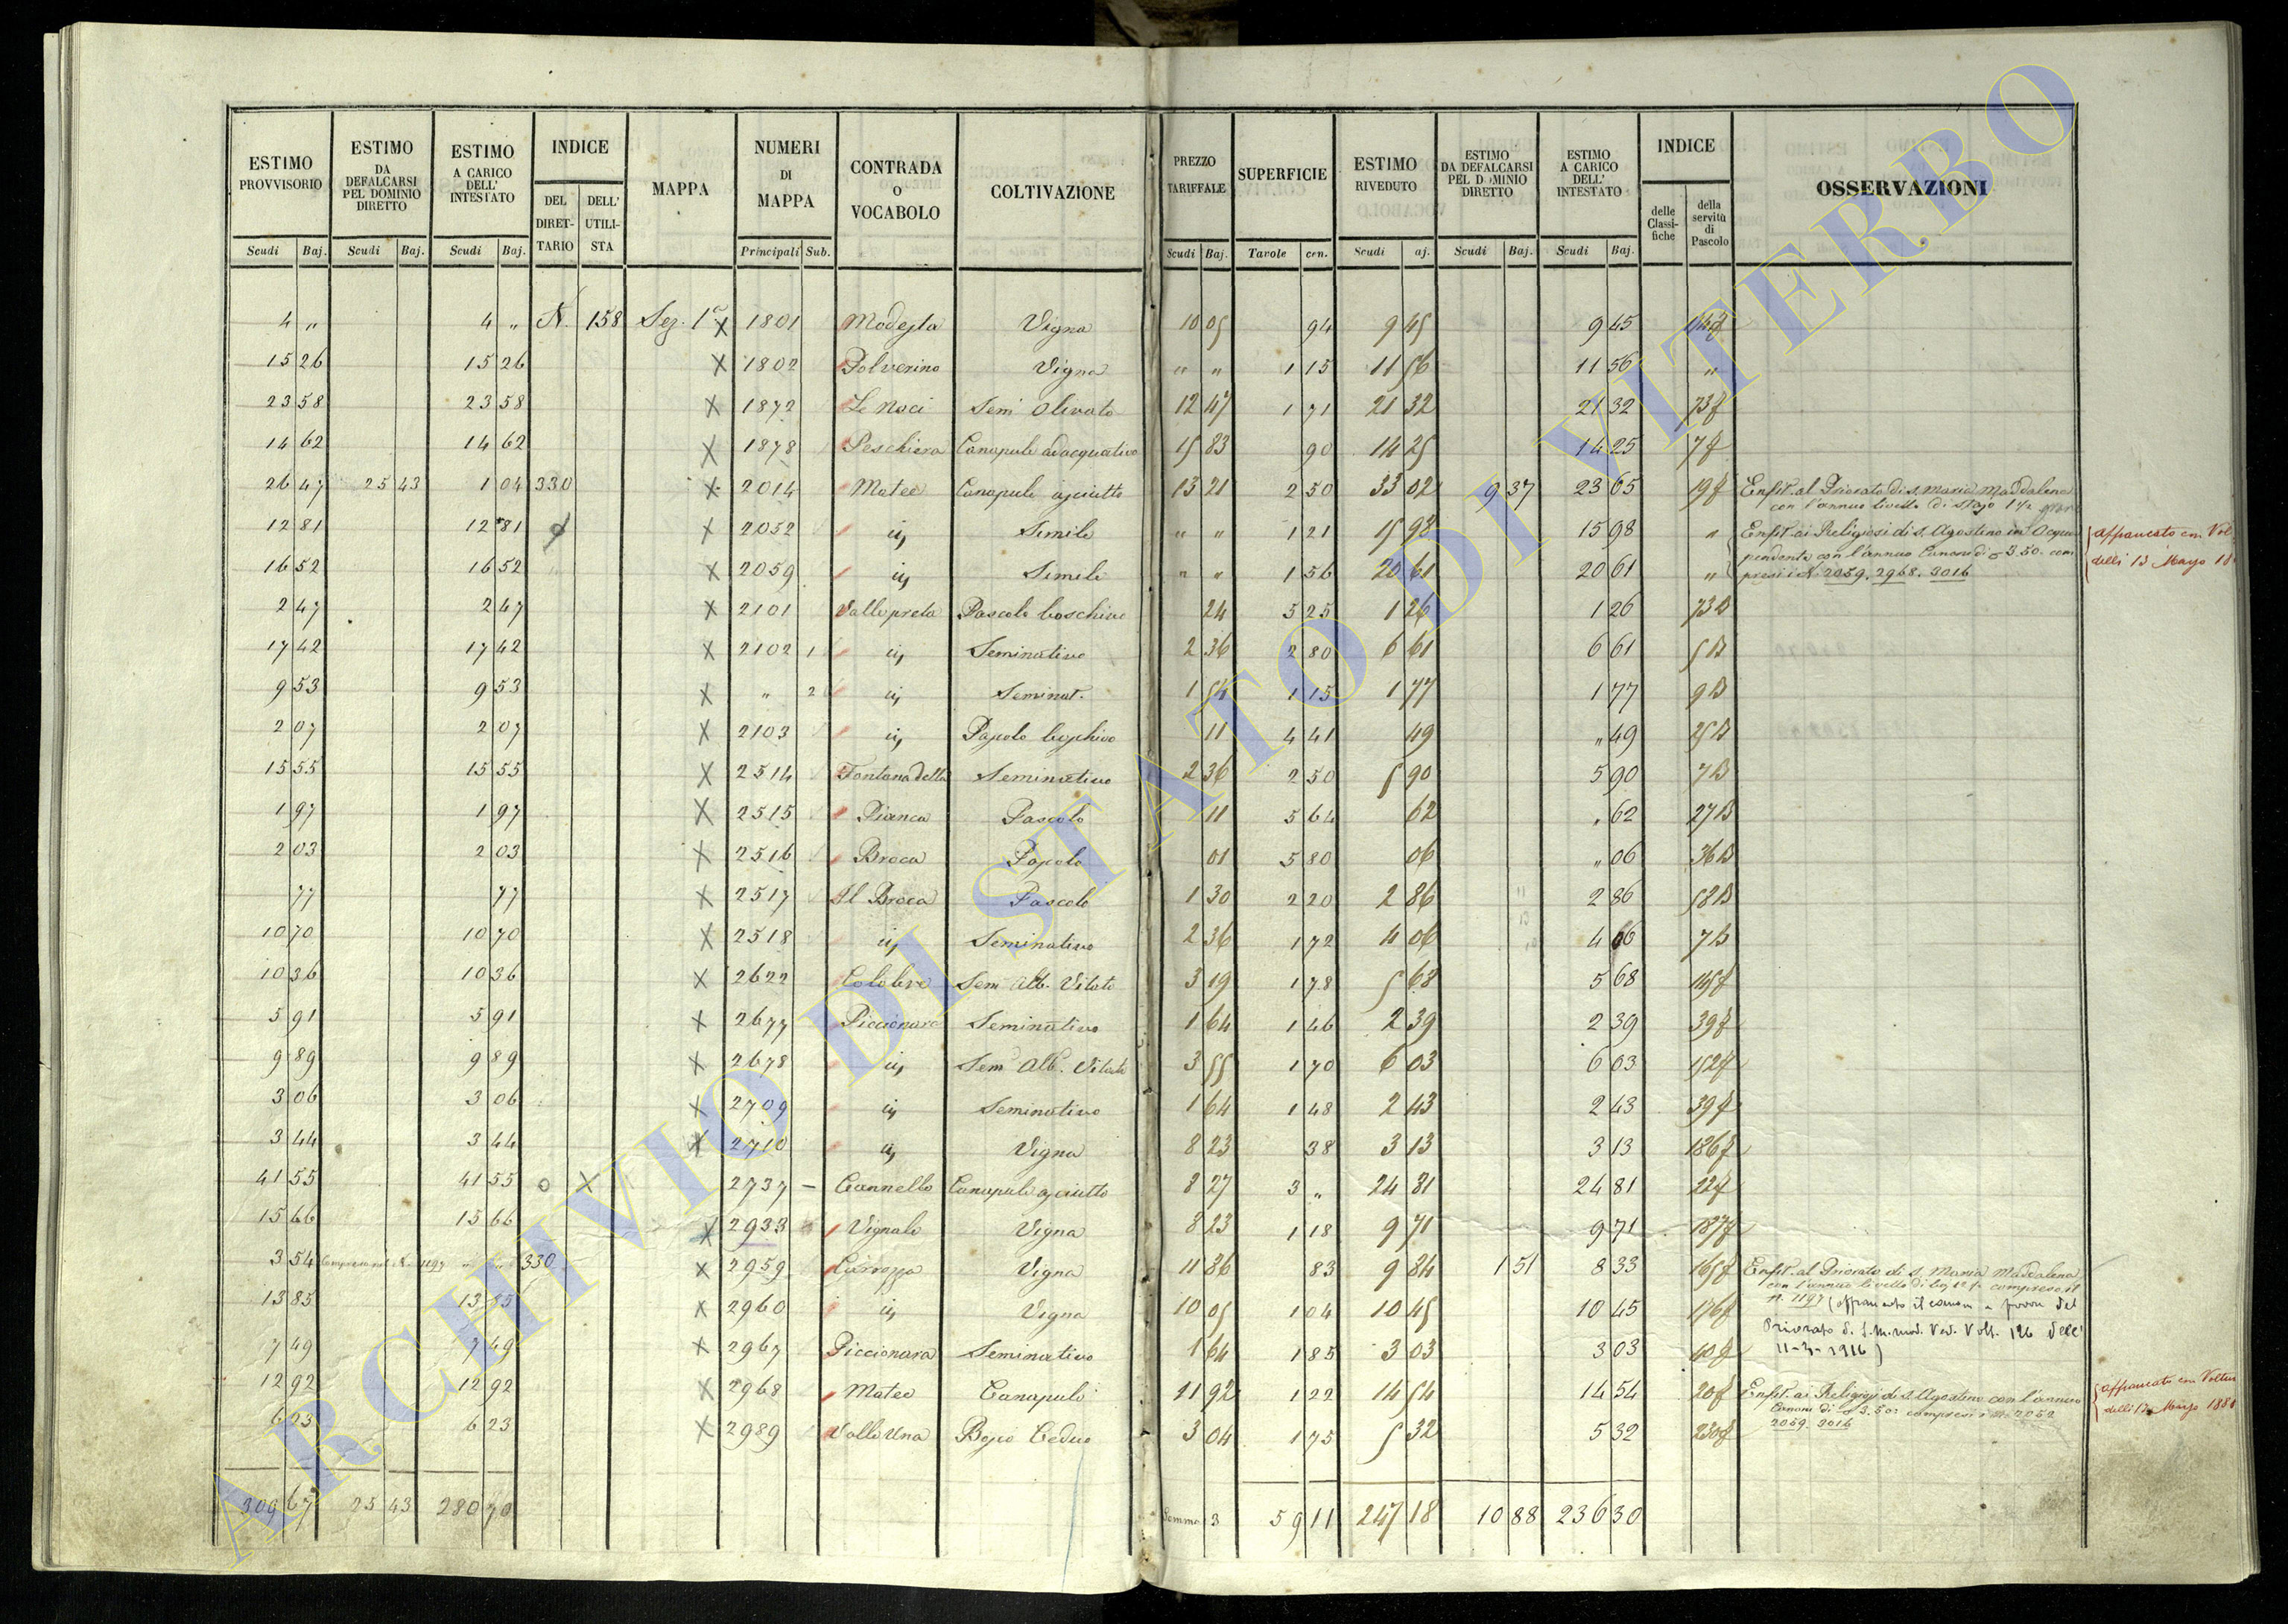 ESTIMO PROVVISORIO
ESTIMO DA DEFALCARSI PEL DOMINIO DIRETTO
ESTIMO A CARICO DELL' INTESTATO
INDICE
DEL DIRETTARIO
DELL' UTILISTA
MAPPA
NUMERI DI MAPPA
CONTRADA O VOCABOLO
COLTIVAZIONE
PREZZO TARIFFALE
SUPERFICIE
ESTIMO RIVEDUTO
ESTIMO DA DEFALCARSI PEL DOMINIO DIRETTO
ESTIMO A CARICO DELL' INTESTATO
INDICE
delle Classifiche
della servitù di Pascolo
OSSERVAZIONI
Scudi Baj. Scudi Baj. Scudi Baj. Principali Sub. Scudi Baj. Tavole cen. Scudi aj. Scudi Baj. Scudi Baj.
4 „ 4 „ N. 158 Sez. 1a X 1801 Modesta Vigna 10 05 94 9 45 9 45
15 26 15 26 X 1802 Polverino Vigna „ „ 1 15 11 56 11 56 „
23 58 23 58 X 1872 Le Noci Sem Olivato 12 47 1 71 21 32 21 32 73f
14 62 14 62 X 1878 Peschiera Canapule adacquativo 15 83 90 14 25 14 25 7f
26 47 25 43 1 04 330 X 2014 Mateo Canapule asciutto 13 21 2 50 33 02 9 37 23 65 19f Enfit. al Priorato di S. Maria Maddalena
con l'annuo livello di stajo 1 1/2
12 81 12 81 X 2052 ii, Simile „ „ 1 21 15 98 15 98 „ Enfit. ai Religiosi di S. Agostino in Acqua
pendente con l'annuo Canone di 3.50. com
affrancato con Vol
16 52 16 52 X 2059 ii, Simile „ „ 1 56 20 61 20 61 „ presi i N. 2059. 2968. 3016
delli 13 Marzo 18
2 47 2 47 X 2101 Valle preta Pascolo boschivo 24 5 25 1 26 1 26 73B
17 42 17 42 X 2102 1 ii, Seminativo 2 36 2 80 6 61 6 61 5B
9 53 9 53 X „ 2 ii, Seminat. 1 54 1 15 1 77 1 77 9B
2 07 2 07 X 2103 ii, Pascolo boschivo 11 4 41 49 „ 49 25B
15 55 15 55 X 2514 Fontana della Seminativo 2 36 2 50 5 90 5 90 7B
1 97 1 97 X 2515 Pianca Pascolo 11 5 64 62 „ 62 27B
2 03 2 03 X 2516 Broca Pascolo 01 5 80 06 „ 06 36B
77 77 X 2517 Il Broca Pascolo 1 30 2 20 2 86 2 86 52B
10 70 10 70 X 2518 ii, Seminativo 2 36 1 72 4 06 4 06 7B
10 36 10 36 X 2622 Colobro Sem Alb. Vitato 3 19 1 78 5 68 5 68
5 91 5 91 X 2677 Piccionara Seminativo 1 64 1 46 2 39 2 39 39f
9 89 9 89 X 2678 ii, Sem Alb. Vitato 3 55 1 70 6 03 6 03 152f
3 06 3 06 X 2709 ii, Seminativo 1 64 1 48 2 43 2 43 39f
3 44 3 44 X 2710 ii, Vigna 8 23 38 3 13 3 13 186f
41 55 41 55 o X 2737 – Cannello Canapule asciutto 8 27 3 „ 24 81 24 81 22f
15 66 15 66 X 2933 Vignale Vigna 8 23 1 18 9 71 9 71 187f
3 54 Compreso nel N. 1197 „ „ 330 X 2959 Carozza Vigna 11 86 83 9 84 1 51 8 33 165f Enfit. al Priorato di S. Maria Maddalena
con l'annuo livello di compreso il
13 85 13 85 X 2960 ii, Vigna 10 05 1 04 10 45 10 45 176f n. 1197 (affrancato il canone a favore del
Priorato di S. M. mad. Ved. Volt. 126 dell'
7 49 7 49 X 2967 Piccionara Seminativo 1 64 1 85 3 03 3 03 40f 11-3-1916)
12 92 12 92 X 2968 Mateo Canapule 11 92 1 22 14 54 14 54 20f Enfit. ai Religiosi di S. Agostino con l'annuo
Canone di 3.50: compresi i N. 2052
2059. 3016
affrancato con Voltura
delli 13 Marzo 188
6 23 6 23 X 2989 Valle Una Bosco Ceduo 3 04 1 75 5 32 5 32 230f
309 67 25 43 280 70 Somma 3 59 11 247 18 10 88 236 30
ARCHIVIO DI STATO DI VITERBO